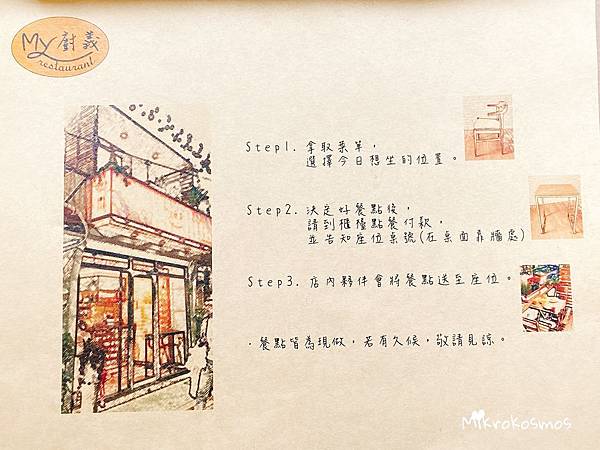 My廚義
restaurant
Step1. 拿取菜單，
選擇今日想坐的位置。
Step2. 決定好餐點後，
請到櫃檯點餐付款，
並告知座位桌號(在桌面靠牆處)
Step3. 店內夥伴會將餐點送至座位。
·餐點皆為現做，若有久候，敬請見諒。
Mikrokosmos